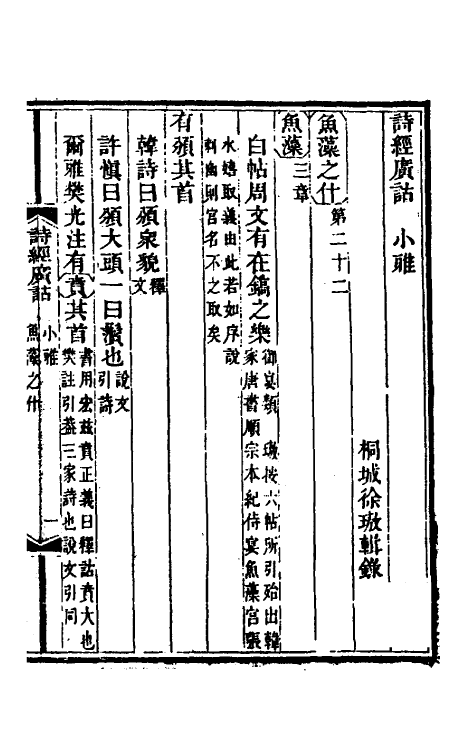 詩經廣詁　小雅
桐城徐璈輯錄
魚藻之什第二十二
魚藻三章
白帖周文有在鎬之樂御宴類　璈按六帖所引殆出韓
家唐書順宗本紀侍宴魚藻宮張
水嬉取義由此若如序說
則幽宮名不之取矣
有頒其首
韓詩曰頒衆貌釋文
許愼曰頒大頭一曰鬢也說文引詩
爾雅樊光注有賁其首書用宏茲賁正義曰釋詁賁大也
樊註引蓋三家詩也說文引同
詩經廣詁　小雅　魚藻之什　一